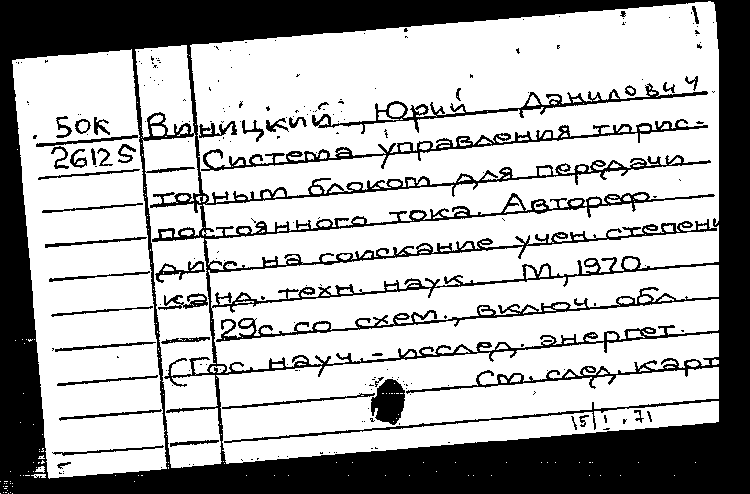 50К Виницкий, Юрий Данилович
26125 Система управления тирис-
торным блоком для передачи
постоянного тока. Автореф.
дисс. на соискание учен. степени
канд. техн. наук. М., 1970.
29с. со схем., включ. обл.
(Гос. науч. - исслед. энергет.
См. след. карт
15/I.71